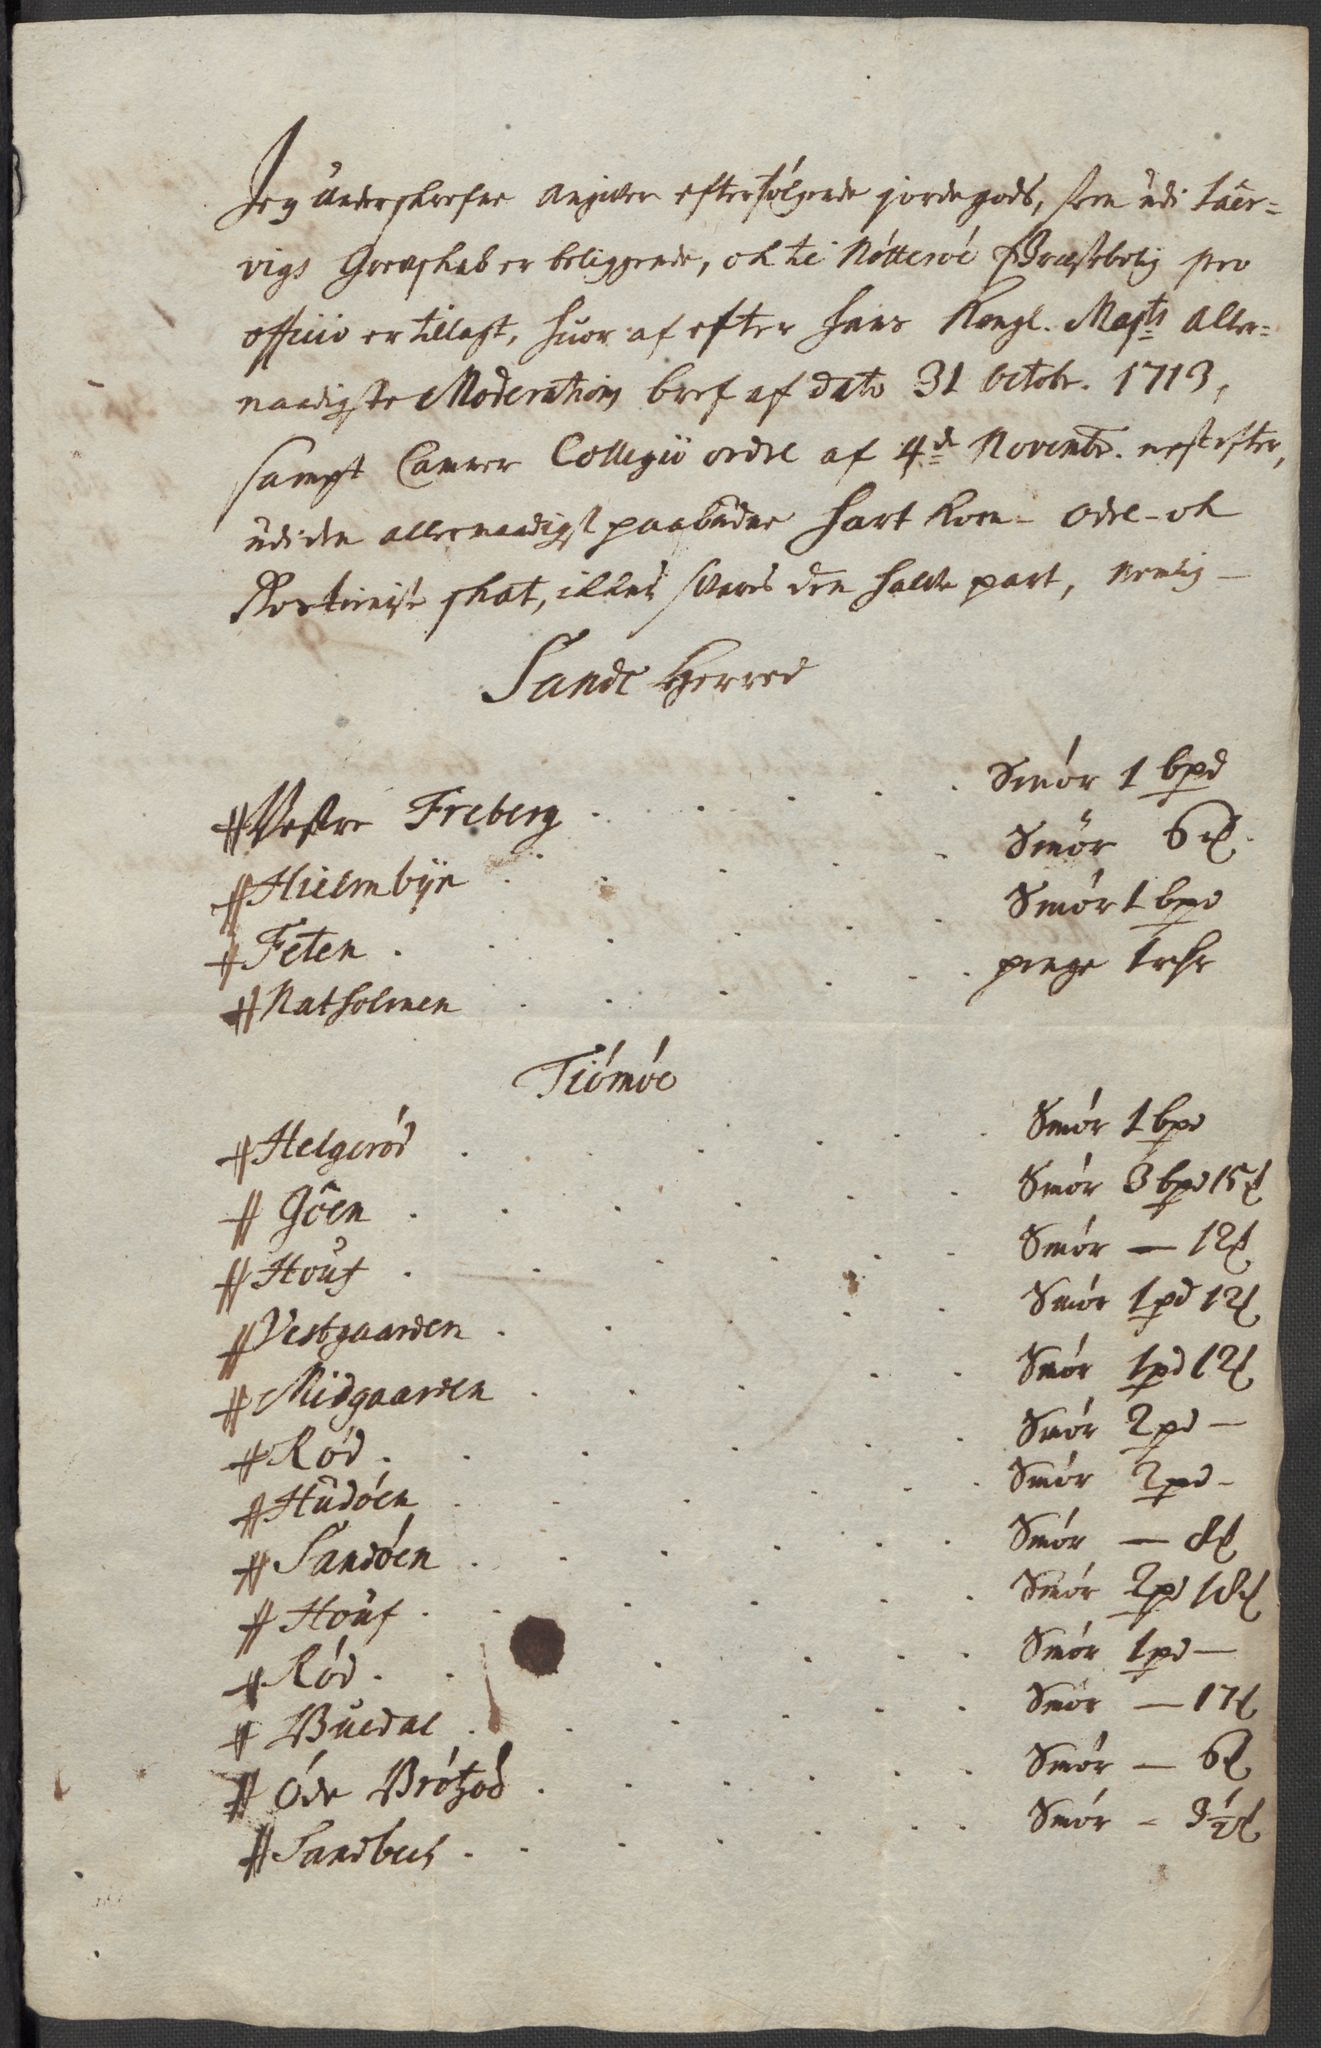 Jeg Underskrefne angiver efterfølgende jordegods, som udi Laur=
vigs Grevskab er beliggende, och til Nøtterøe Præstebolig pro
officio er tillagt, huor af efter Hans Kongl. Maj:ts aller=
naadigste Moderations bref af dato 31 Octobr. 1713,
sampt Cammer Collegii ordre af 4de Novembr. nestefter,
udi den allernaadigst paabudne Hart Korn- Odel- och
Rostieniste skat, ickun svares den halve part, nemlig-
Sande Herred
# Vestre Freberg . . . . . Smør 1 bpd
# Hielmbÿe . . . . . Smør 6 ℔
# Feten . . . . . . Smør 1 bpd
# Natholmen . . . . . penge 1 rdr
Tiømøe
# Helgerød . . . . . Smør 1 bpd
# Gôen . . . . . . Smør 3 bpd 15 ℔
# Houf . . . . . . Smør — 12 ℔
# Vestgaarden . . . . . Smør 1 pd 12 ℔
# Midgaarden . . . . . Smør 1 pd 12 ℔
# Rød . . . . . . Smør 2 pd —
# Hudøen . . . . . . Smør 2 pd -
# Sandøen . . . . . . Smør — 8 ℔
# Houf . . . . . . Smør 2 pd 18 ℔
# Rød . . . . . . Smør 1 pd —
# Buedal . . . . . . Smør — 17 ℔
# Óde Brøtsød . . . . . Smør — 6 ℔
# Sandbech . . . . . . Smør - 3½ ℔